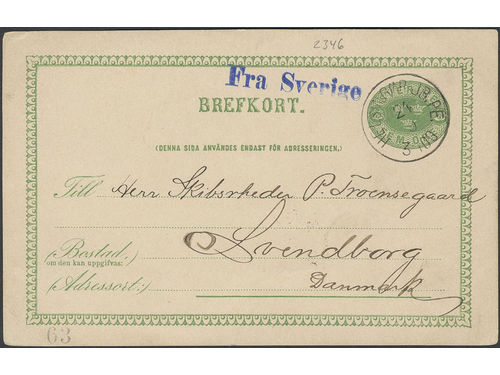 2346
Fra Sverige
BREFKORT.
24
3
(DENNA SIDA ANVÄNDES ENDAST FÖR ADRESSERINGEN.)
Till Herr Skibsrheder P. Troensegaard
Bostad.
(om den kan uppgifvas:
Svendborg
(Adressort:)
Danmark
63